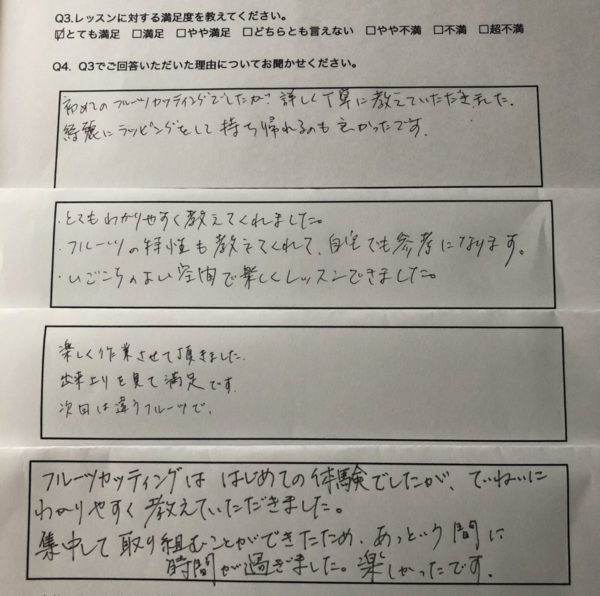 Q3.レッスンに対する満足度を教えてください。
☑とても満足 □満足 □やや満足 □どちらとも言えない □やや不満 □不満 □超不満
Q4. Q3でご回答いただいた理由についてお聞かせください。
初めてのフルーツカッティングでしたが、詳しく丁寧に教えていただきました。
綺麗にラッピングをして持ち帰れるのも良かったです。
・とてもわかりやすく教えてくれました。
・フルーツの特性も教えてくれて、自宅でも参考になります。
・いごこちのよい空間で楽しくレッスンできました。
楽しく作業させて頂きました。
出来上りを見て満足です。
次回は違うフルーツで。
フルーツカッティングは はじめての体験でしたが、ていねいに
わかりやすく教えていただきました。
集中して取り組むことができたため、あっという間に
時間が過ぎました。楽しかったです。